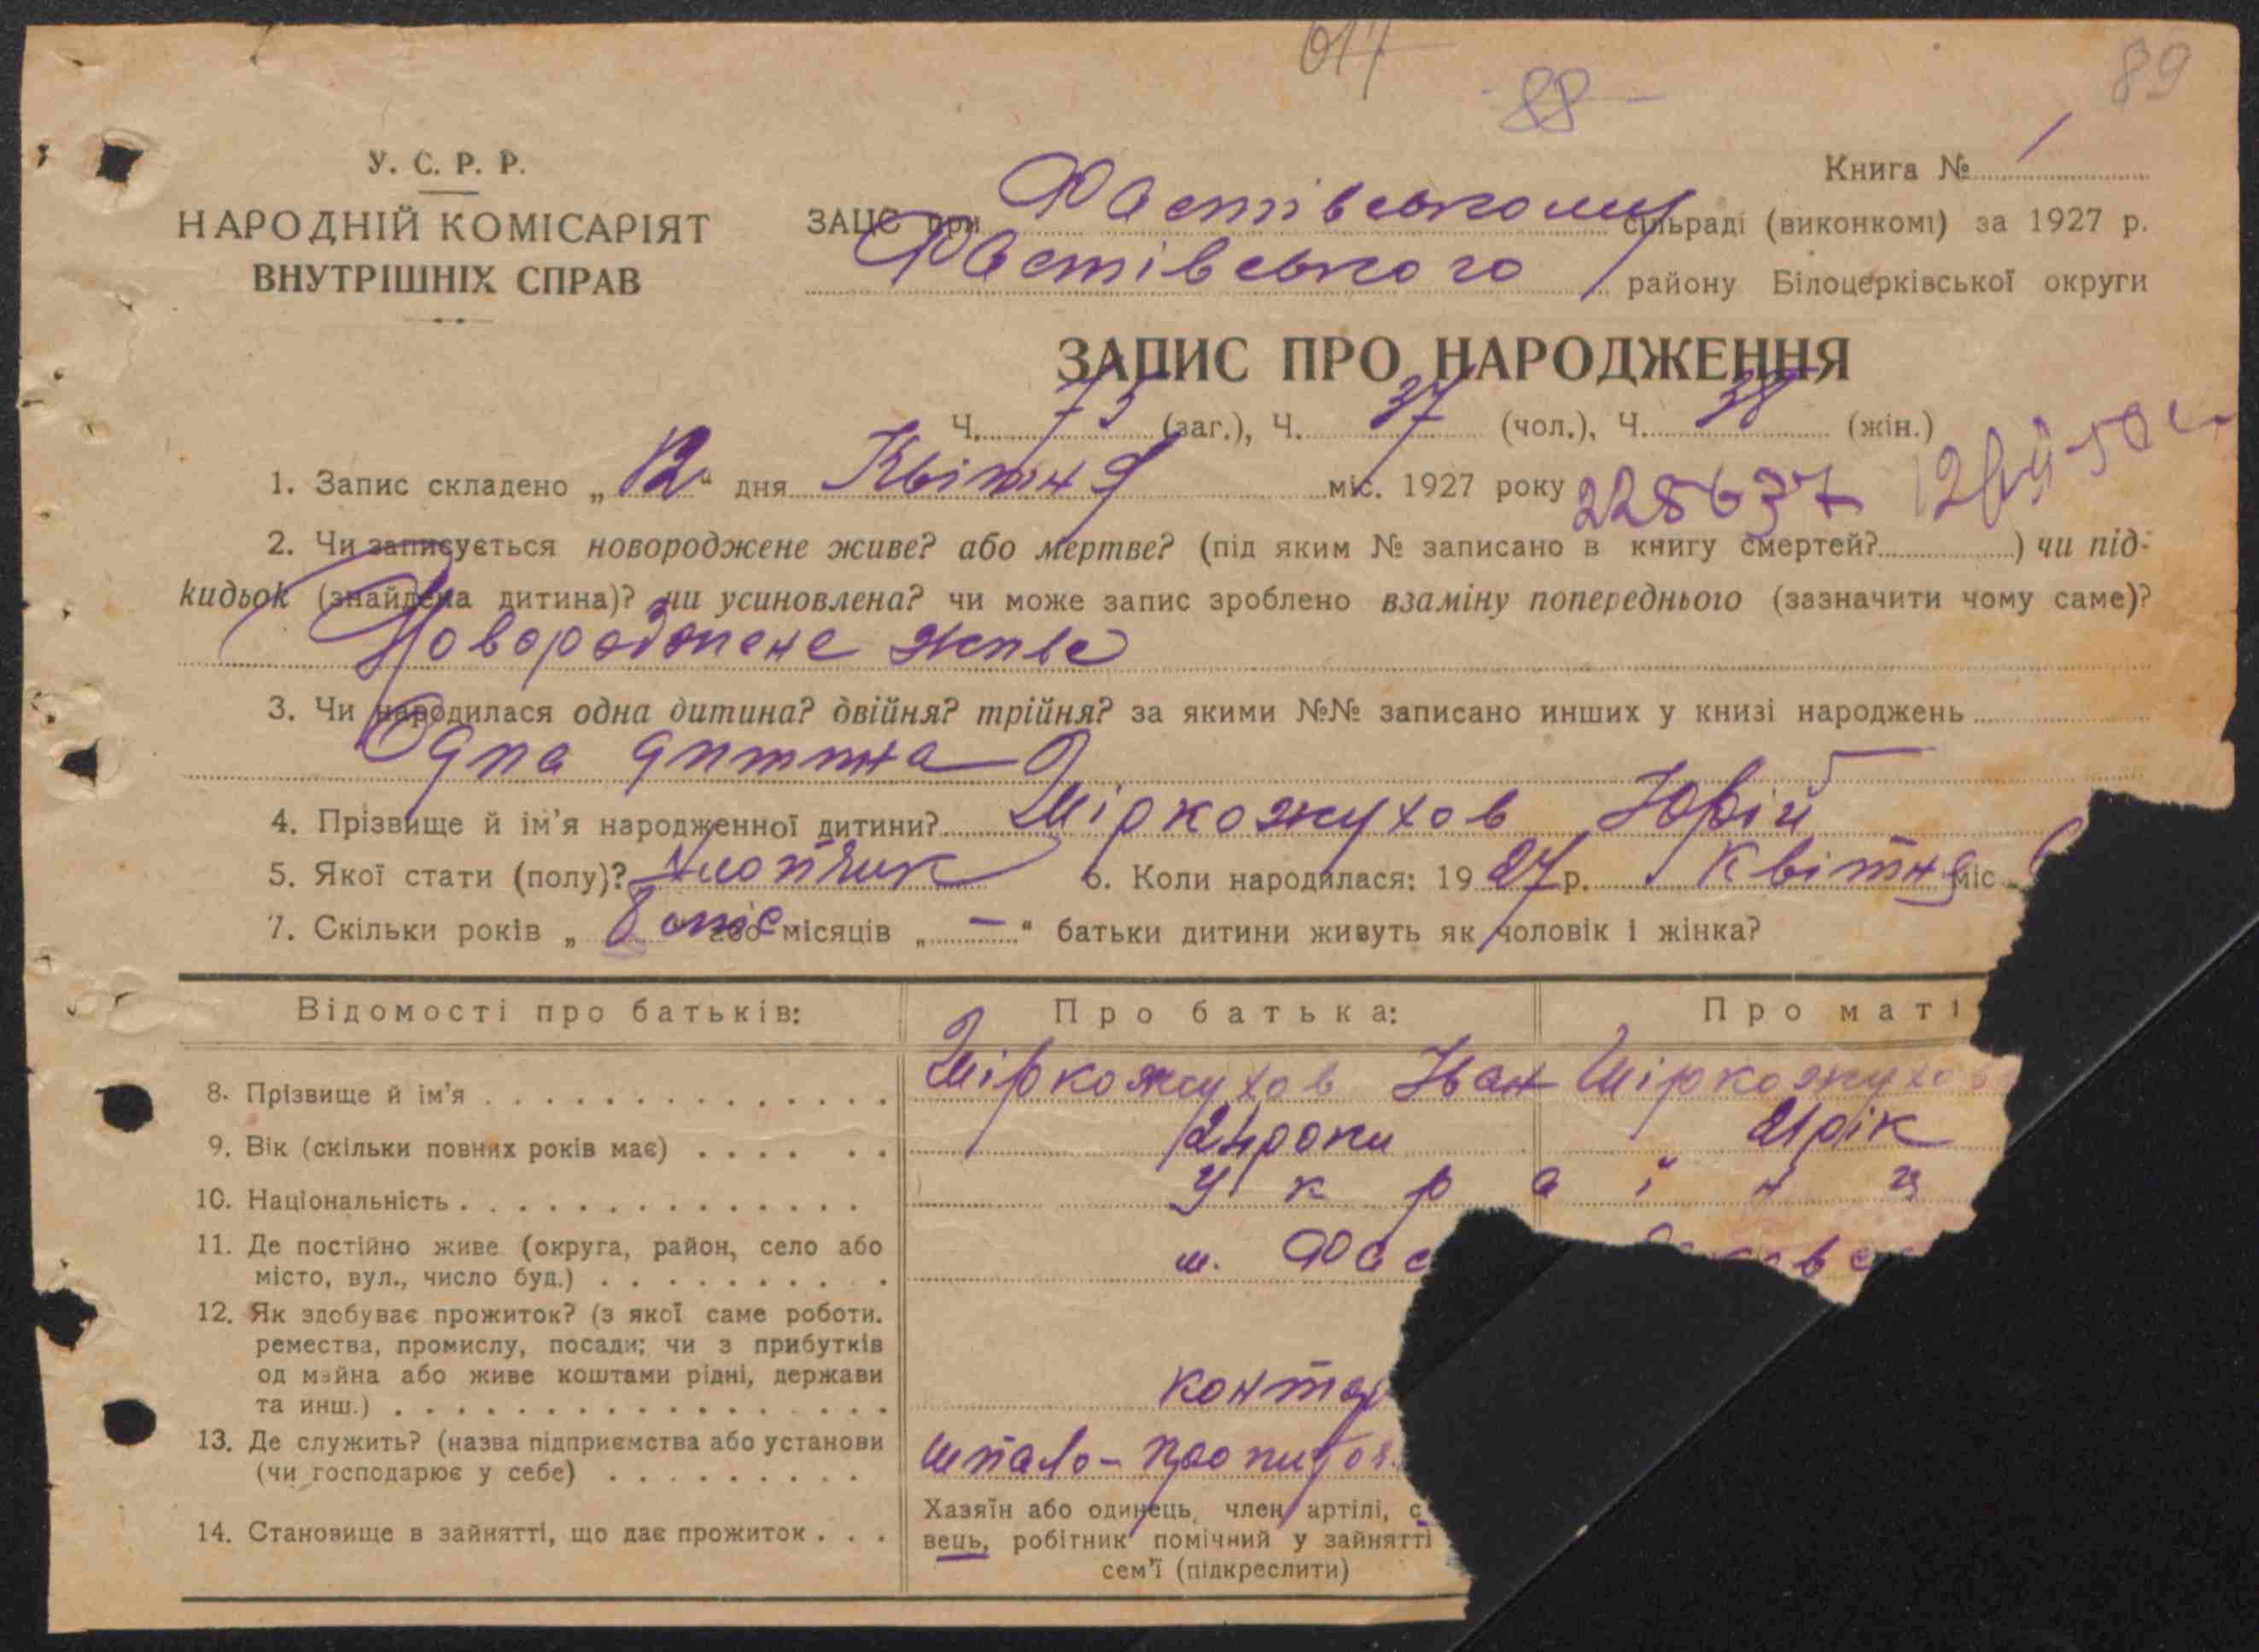 617
88
89
У. С. Р. Р.
НАРОДНІЙ КОМІСАРІЯТ
ВНУТРІШНІХ СПРАВ
Книга № 1
ЗАЦС при Фастівському сільраді (виконкомі) за 1927 р.
Фастівського району Білоцерківської округи
ЗАПИС ПРО НАРОДЖЕННЯ
Ч. 75 (заг.), Ч. 37 (чол.), Ч. 38 (жін.)
1. Запис складено „12“ дня Квітня міс. 1927 року 228637
2. Чи записується новороджене живе? або мертве? (під яким № записано в книгу смертей?) чи під-
кидьок (знайдена дитина)? чи усиновлена? чи може запис зроблено взаміну попереднього (зазначити чому саме)?
Новороджене живе
3. Чи народилася одна дитина? двійня? трійня? за якими №№ записано инших у книзі народжень
Одна дитина
4. Прізвище й ім’я народженної дитини? Шіркожухов Юрій
5. Якої стати (полу)? Хлопчик 6. Коли народилася: 1927 р. Квітня міс
7. Скільки років „ 8 міс або місяців „ — “ батьки дитини живуть як чоловік і жінка?
Відомості про батьків: Про батька: Про маті
8. Прізвище й ім’я Шіркожухов Іван Шіркожухова
9. Вік (скільки повних років має) 24 роки 21 рік
10. Національність Україн ц
11. Де постійно живе (округа, район, село або
місто, вул., число буд.) м. Фас
12. Як здобуває прожиток? (з якої саме роботи.
ремества, промислу, посади; чи з прибутків
од майна або живе коштами рідні, держави
та инш.) контор
13. Де служить? (назва підприємства або установи
(чи господарює у себе) шпало-пропиточ
14. Становище в зайнятті, що дає прожиток
Хазяїн або одинець, член артілі, с
вець, робітник помічний у зайнятті
сем’ї (підкреслити)